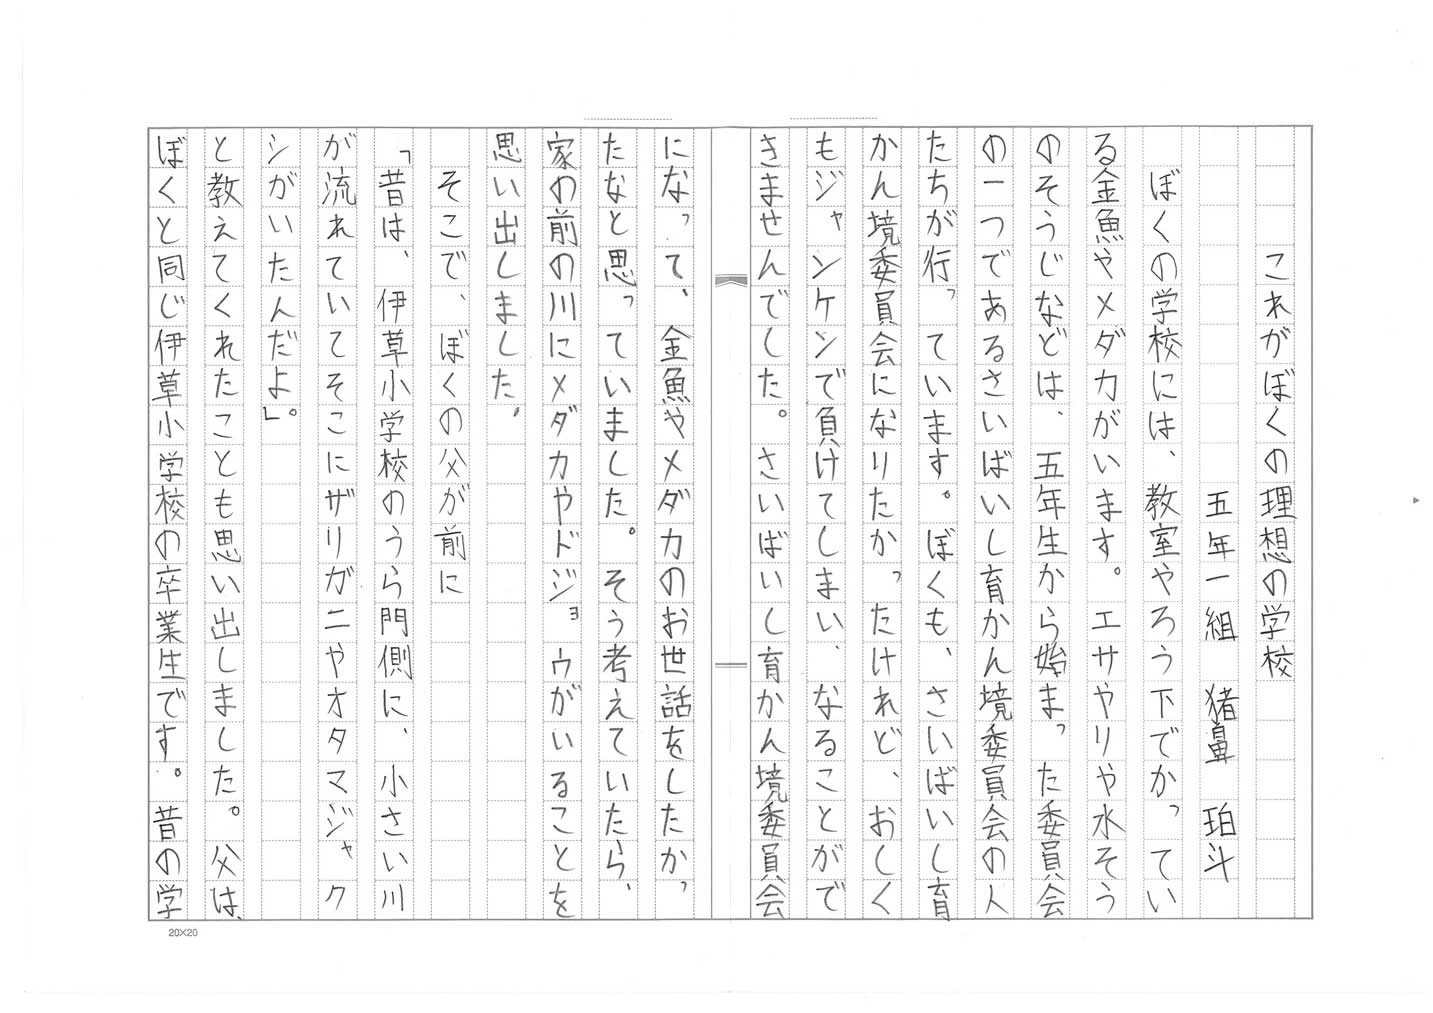 これがぼくの理想の学校
五年一組 猪鼻 珀斗
ぼくの学校には、教室やろう下でかってい
る金魚やメダカがいます。エサやりや水そう
のそうじなどは、五年生から始まった委員会
の一つであるさいばいし育かん境委員会の人
たちが行っています。ぼくも、さいばいし育
かん境委員会になりたかったけれど、おしく
もジャンケンで負けてしまい、なることがで
きませんでした。さいばいし育かん境委員会
になって、金魚やメダカのお世話をしたかっ
たなと思っていました。そう考えていたら、
家の前の川にメダカやドジョウがいることを
思い出しました。
そこで、ぼくの父が前に
「昔は、伊草小学校のうら門側に、小さい川
が流れていてそこにザリガニやオタマジャク
シがいたんだよ」。
と教えてくれたことも思い出しました。父は、
ぼくと同じ伊草小学校の卒業生です。昔の学
20×20